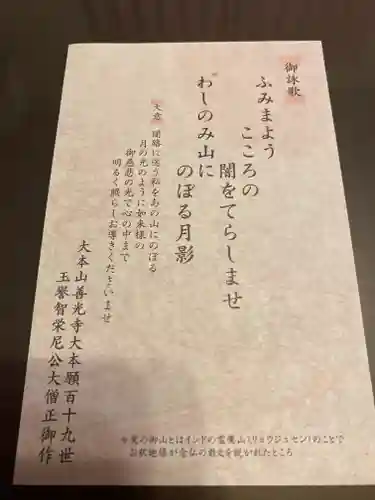 御詠歌
ふみまよう
こころの
闇をてらしませ
わしのみ山に
のぼる月影
大意
闇路に迷う私をあの山にのぼる
月の光のように如来様の
御慈悲の光で心の中まで
明るく照らしお導きくださいませ
大本山善光寺大本願百十九世
玉誉智栄尼公大僧正御作
＊鷲の御山とはインドの霊鷲山(リョウジュセン)のことで
お釈迦様が念仏の教文を説かれたところ